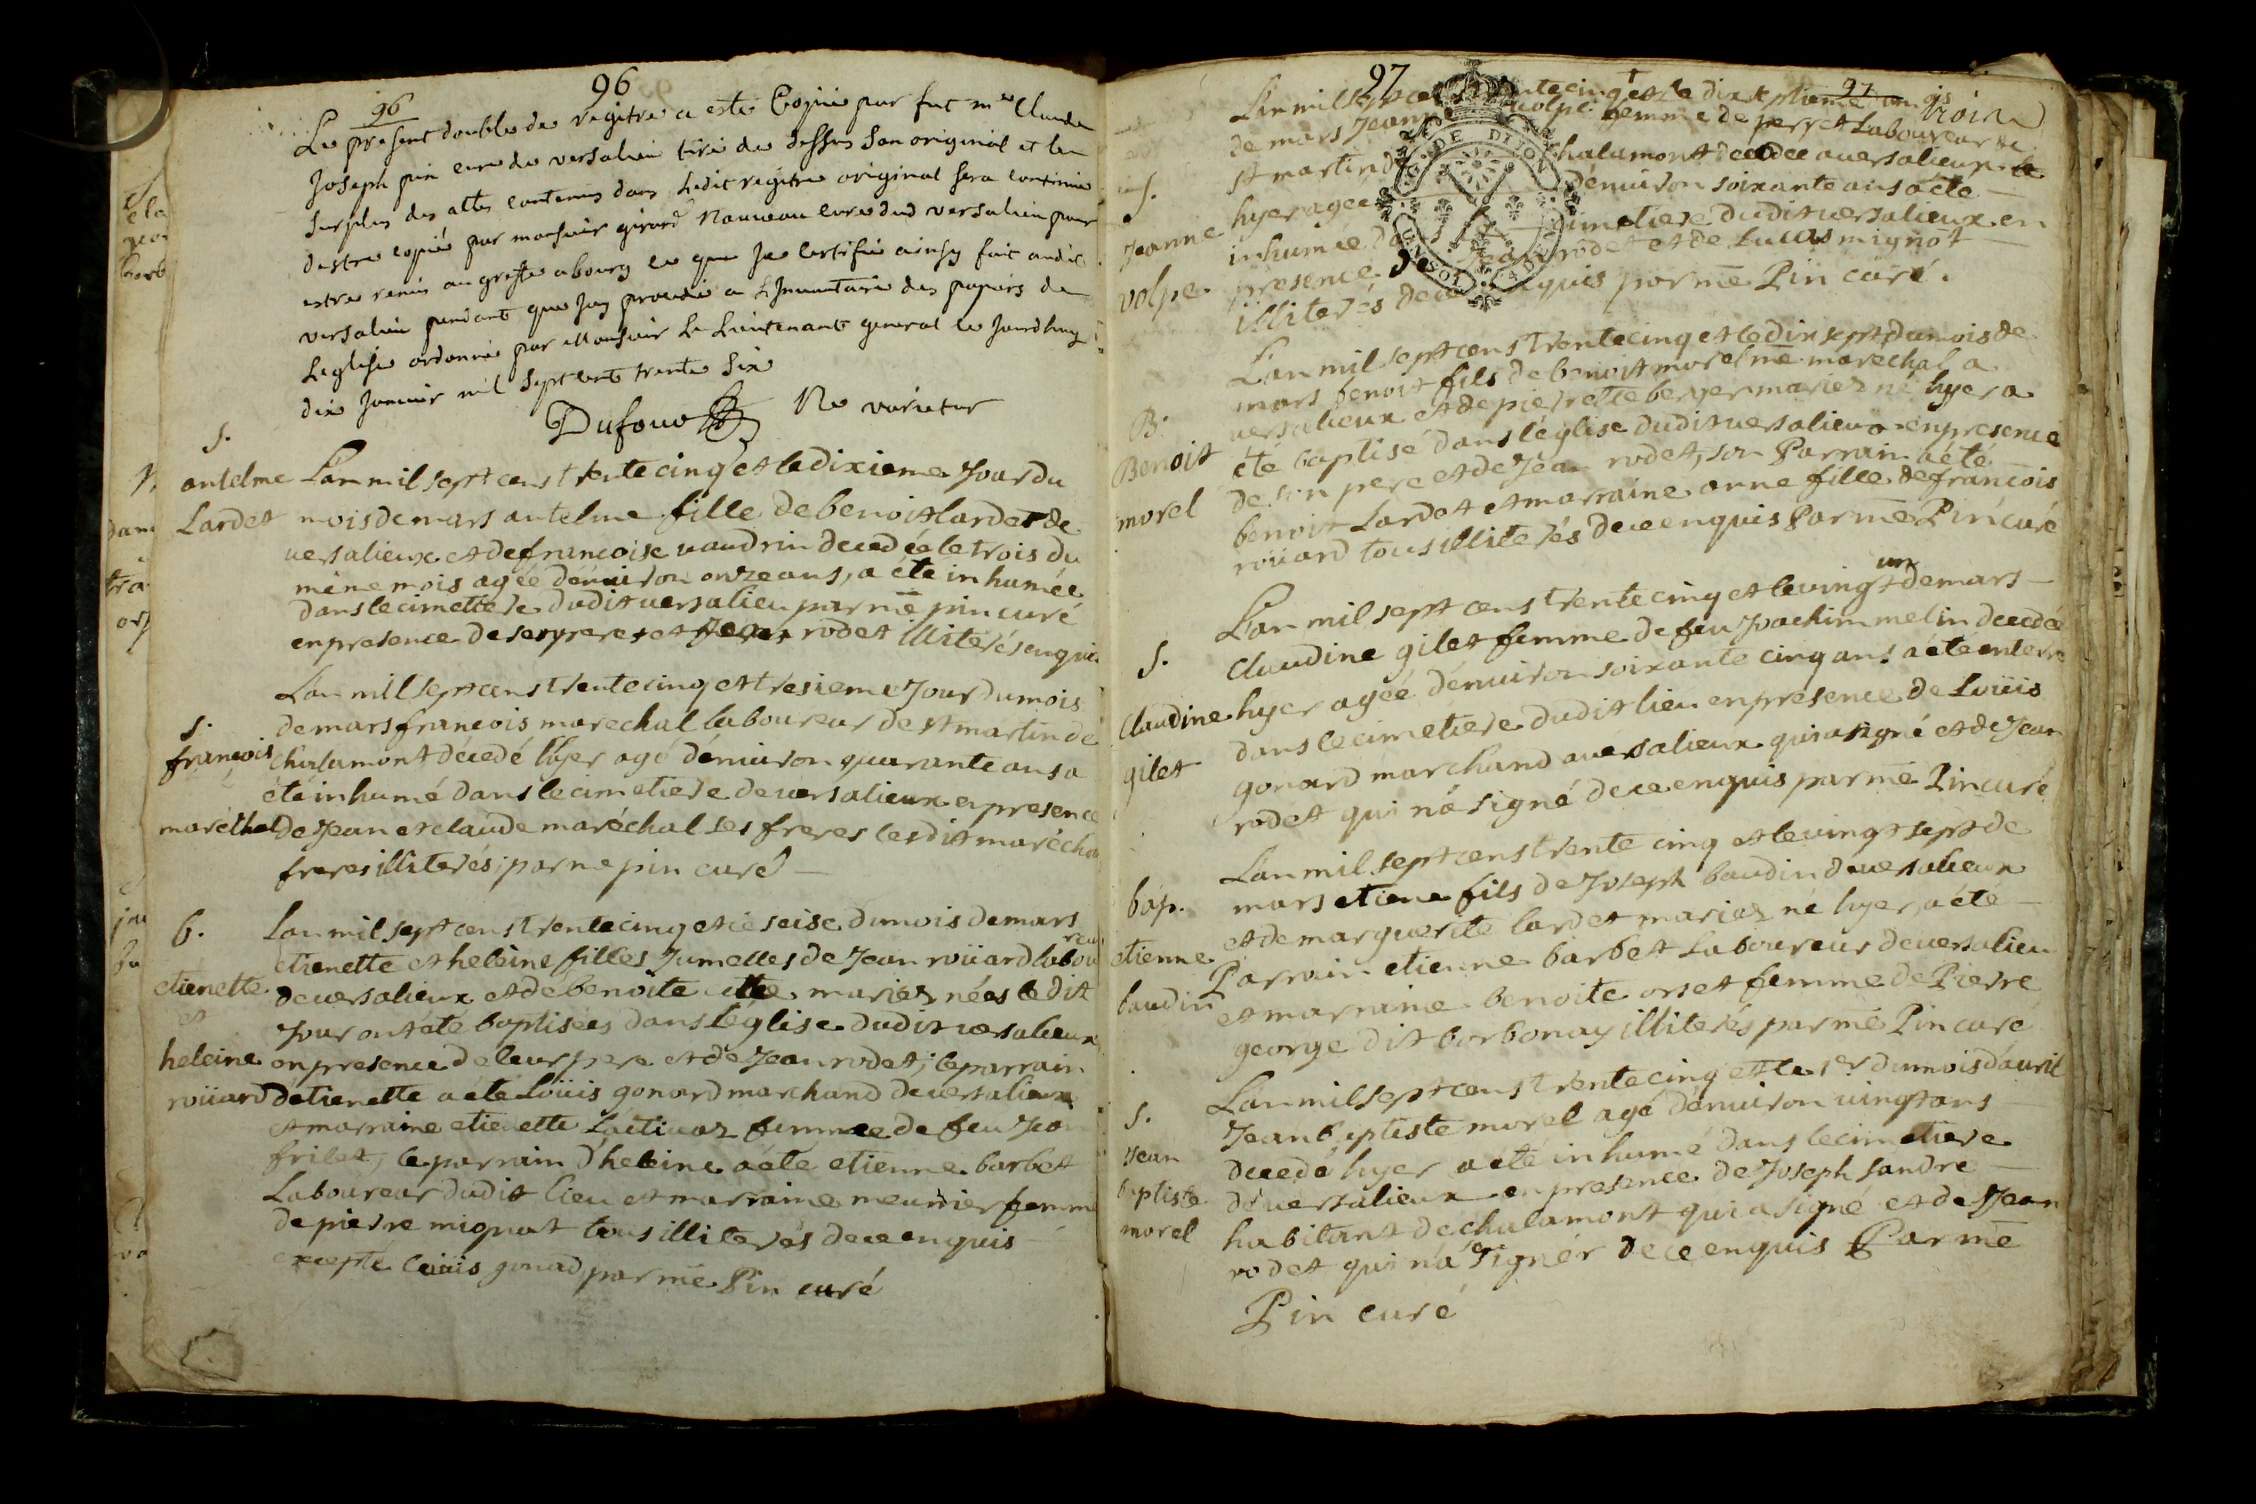 96
96
Le present double de registre a esté Copié par feu mre Claude
Joseph pin curé de versalieu tiré de dessus son original et le
surplus des actes contenus dans ledit registre original sera continué
destre copié par monsieur girard Nouveau curé dud versalieu pour
estre remis au greffe a bourg ce que Je certifie ainsy fait audit
versalieu pendant que Jay procedé a L'Inventaire des papiers de
Leglise ordonné par Monsieur Le Lieutenant general ce Jourdhuy
dix Janvier mil sept cent trente six
Dufour Ne varietur
S.
antelme
Lardet
L'an mil sept cens trente cinq et le dixieme Jour du
mois de mars antelme fille de benoit lardet de
versalieux et de francoise vaudrin decedée le trois du
même mois agée dénuiron onze ans, a été inhumée
dans le cimettiere dudit versalieu par me pin curé
en presence de son pere et et Jean rodet illiterés enquis
S.
françois
maréchal
L'an mil sept cens trente cinq et tresieme Jour du mois
de mars francois marechal laboureur de st martin de
chalamont décedé hyer agé dénuiron quarante ans a
été inhumé dans le cimetiere de versalieux en presence
de Jean et claude maréchal ses freres lesdit maréchal
freres illiterés; par me pin curé
b.
etienette
et
heleine
roüard
L'an mil sept cens trente cinq et le seise du mois de mars
etienette et heleine filles Jumelles de Jean roüard labou
reur
de versalieux et de benoite mariez nées le dit
Jour ont été baptisées dans L'église dudit versalieux
en presence de leur pere et de Jean rodet; le parrain
detienette a été Loüis gonard marchand de versalieux
et marraine etienette femme de feu Jean
frilet, le parrain d'heleine a été etienne barbet
Laboureur dudit lieu et marraine meunier femme
de pierre mignot tous illiterés de ce enquis
excepté loüis gonard par me Pin curé
97
97
trois
S.
Jeanne
volpe
L'an mil sept cens trente cinq et le dix septieme du mois
de mars Jeanne volpe femme de perret Laboureur de
st martin de chalamont decedée a versalieux le
hyer agée dénuiron soixante ans a été
inhumée dans cimetiere dudit versalieux en
presence de Jean rodet et de Lucas mignot
illiterés de ce enquis par me Pin curé.
B.
Benoit
morel
L'an mil sept cens trente cinq et le dix sept du mois de
mars benoit fils de benoit morel me maréchal a
versalieux et de pierrette berger mariez né hyer a
été baptisé dans léglise dudit versalieux en presence
de son pere et de Jean rodet, son Parrain a été
benoit Lardet et marraine anne fille de francois
roüard tous illiterés de ce enquis Par me Pin curé
S.
Claudine
gilet
un
L'an mil sept cens trente cinq et le vingt de mars
Claudine gilet femme de feu Joachim melin decedée
hyer agée dénuiron soixante cinq ans a été enterré
dans le cimetiere dudit lieu en presence de Loüis
gonard marchand a versalieux qui a signé et de Jean
rodet qui n'a signé de ce enquis par me Pin curé
bap.
etienne
baudin
L'an mil sept cens trente cinq et le vingt sept de
mars etiene fils de Joseph baudin de versalieux
et de marguerite lardet mariez né hyer, a été
Parrain etienne barbet Laboureur de versalieu
et marraine benoite orset femme de Pierre
george dit borbonay illiterés par me Pin curé
S.
Jean
baptiste
morel
L'an mil sept cens trente cinq et le 1er du mois d'auril
Jean baptiste morel agé dénuiron vingt ans
decedé hyer a été inhumé dans le cimetiere
de versalieux en presence de Joseph sandre
habitant de chalamont qui a signé et de Jean
rodet qui n'a signér de ce enquis Par me
Pin curé